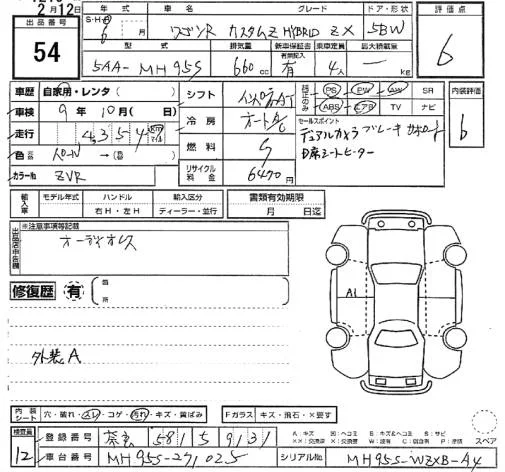 2月12日
出品番号 54
年式 車名 グレード ドア・形状
S・H・R 6 月 ワゴンR カスタムZ HYBRID ZX 5BW
型式 排気量 新車保証書 乗車定員 最大積載量
有無記入
5AA-MH95S 660cc 有 4人 ― kg
評価点 6
車歴 自家用・レンタ( )
車検 9年10月( 日)
走行 4354
色 パールW →(色)
カラーNo ZVR
シフト インパネAT
冷房 オートA/C
燃料 G
リサイクル料金 6470円
純正のみ PS PW AW SR
ABS エアB TV ナビ
セールスポイント
デュアルカメラブレーキサポート
D席シートヒーター
内装評価 6
輸入車 モデル年式 ハンドル 輸入区分
右H・左H ディーラー・並行
書類有効期限
月 日迄
出品店申告欄 ※注意事項等記載
オーディオレス
修復歴 有 箇所
A1
外装A
内装シート 穴・破れ・スレ・コゲ・汚れ・キズ・黄ばみ
Fガラス キズ・飛石・×要す
スペア
検査員 12
登録番号 奈良 581 5 9131
A:キズ E:エクボ B:キズ&ヘコミ S:サビ
XX:交換済 X:交換要 W:波有 C:腐食有 P:塗装要
車台番号 MH95S-271025
シリアルNo. MH95S-WZXB-A4